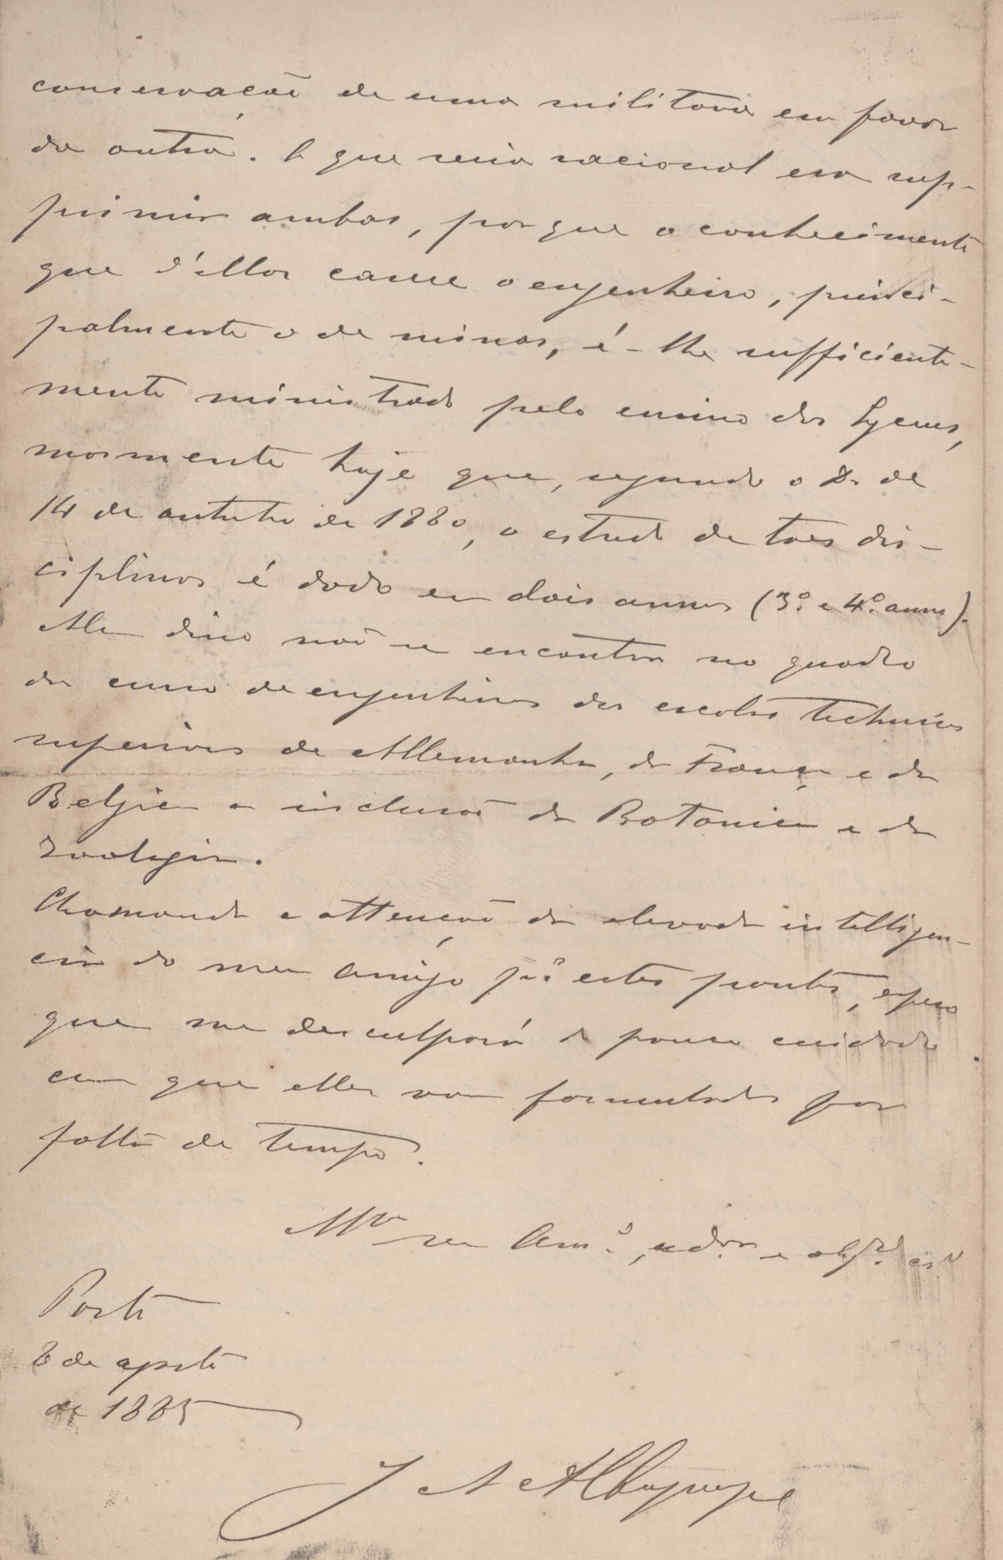 conservação de uma militava em favor
da outra. O que seria racional era sup-
primir ambas, por que o conhecimento
que d'ellas carece o engenheiro, princi-
palmente o de minas, é-lhe sufficiente-
mente ministrado pelo ensino dos Lyceus,
mormente hoje que, segundo o D. de
14 de outubro de 1880, o estudo de taes dis-
ciplinas é dado em dois annos (3.º e 4.º anno).
Alem disso não se encontra no quadro
do curso de engenheiros das escolas technicas
superiores da Allemanha, da França e da
Belgica a inclusão da Botanica e da
Zoologia.
Chamando a attenção da elevada intelligen-
cia do meu Amigo pª estes pontos, espero
que me desculpará o pouco cuidado
com que elles vão formulados por
falta de tempo.
Mto seu Am.º, e obgdo
Porto
8 de agosto
de 1885
J A Albuquerque